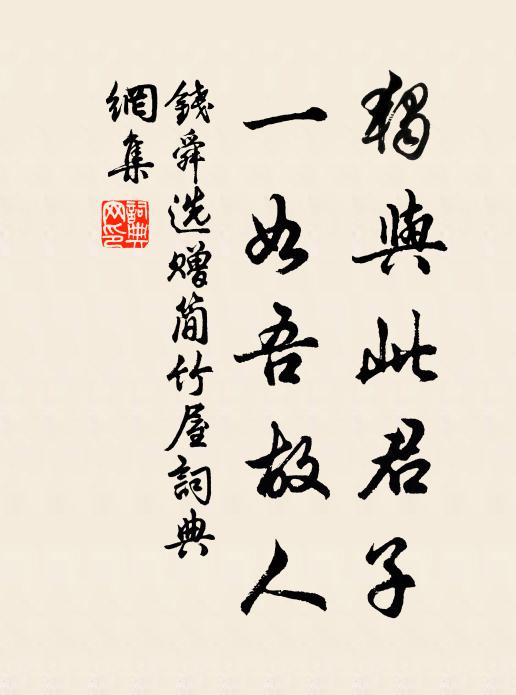 獨與此君子
一如吾故人
錢舜选赠简竹屋詞典
網集
詞典
网印